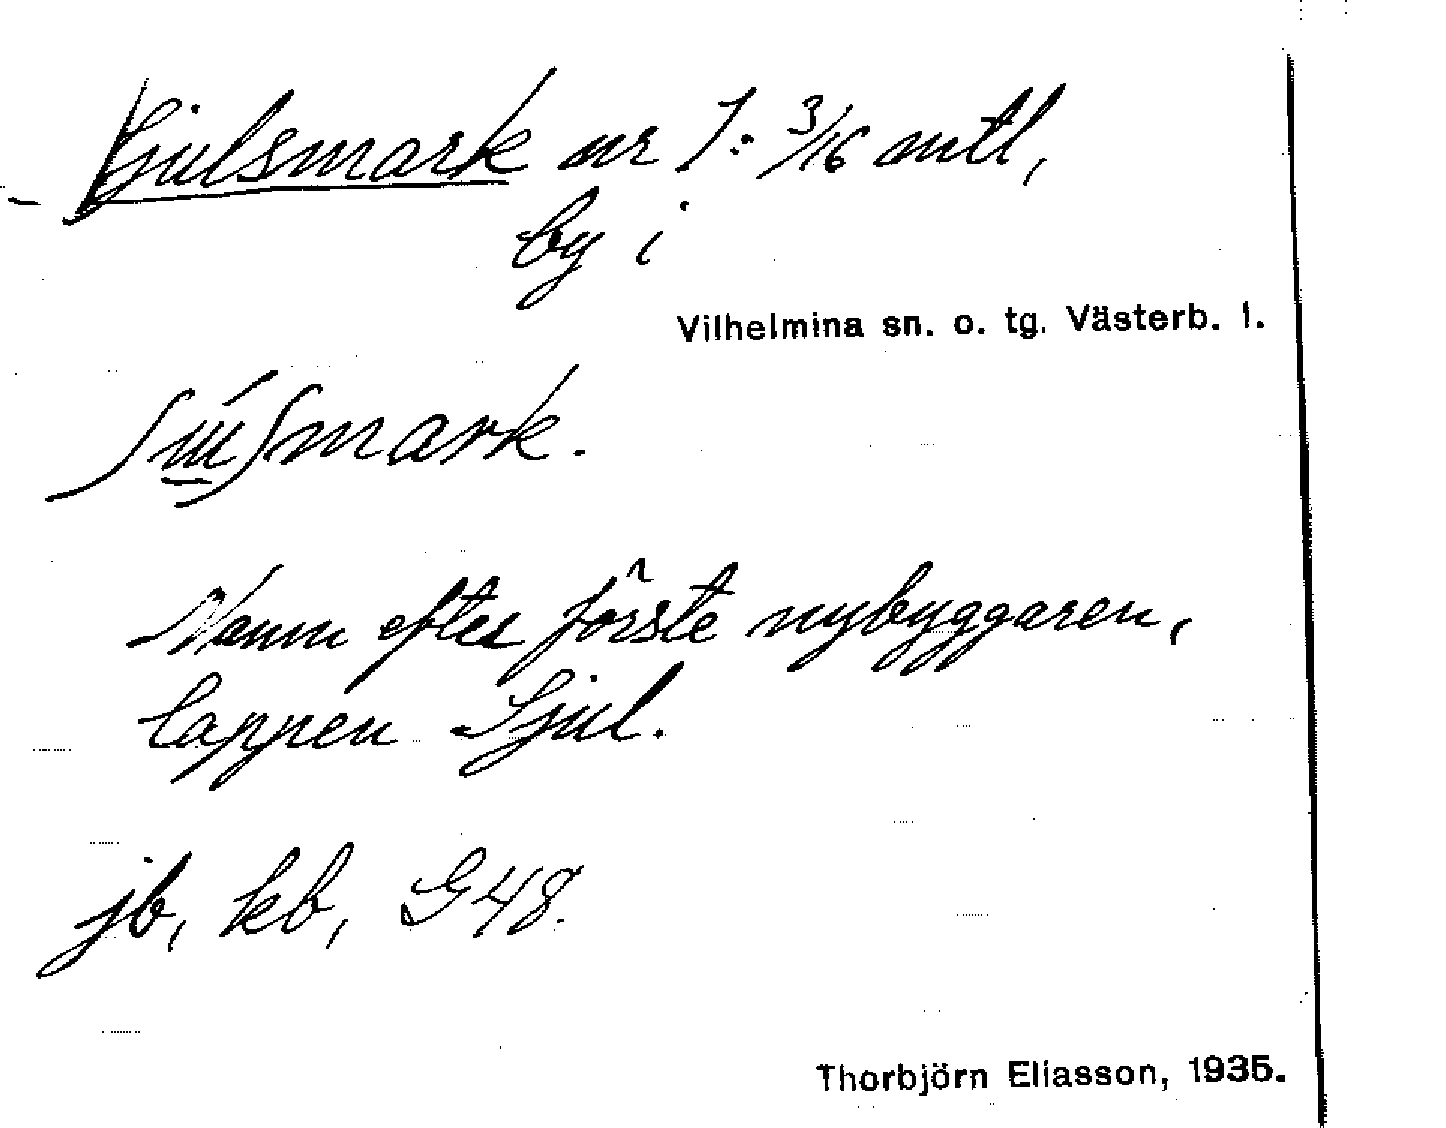 Sjulsmark nr 1: 3/16 mtl,
by i
Vilhelmina sn. o. tg. Västerb. l.
ʃɯ́ʃmark.
Namn efter förste nybyggaren,
lappen Sjul.
jb, kb, G48.
Thorbjörn Eliasson, 1935.